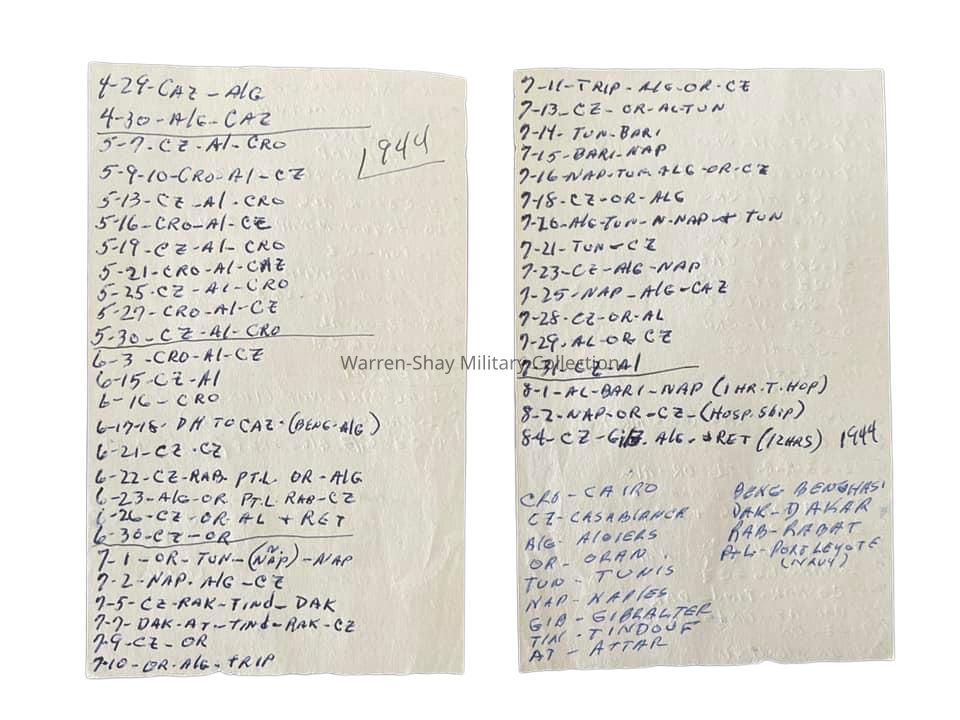 4-29-CAZ-AlG
4-30-AlG-CAZ
5-7-CZ-Al-CRO
1944
5-9-10-CRO-Al-CZ
5-13-CZ-Al-CRO
5-16-CRO-Al-CZ
5-19-CZ-Al-CRO
5-21-CRO-Al-CAZ
5-25-CZ-Al-CRO
5-27-CRO-Al-CZ
5-30-CZ-Al-CRO
6-3-CRO-Al-CZ
6-15-CZ-Al
6-16-CRO
6-17-18-DH TO CAZ-(BENG-AlG)
6-21-CZ-CZ
6-22-CZ-RAB. PT.L. OR-AlG
6-23-AlG-OR. PT.L. RAB-CZ
6-26-CZ-OR. AL + RET
6-30-CZ-OR
7-1-OR-TUN-(NAP)-NAP
7-2-NAP. AlG-CZ
7-5-CZ-RAK-TINd-DAK
7-7-DAK-AT-TINd-RAK-CZ
7-9-CZ-OR
7-10-OR-AlG-TRIP
7-11-TRIP-AlG-OR-CZ
7-13-CZ-OR-ALTUN
7-14-TUN-BARI
7-15-BARI-NAP
7-16-NAP-TUN-ALG-OR-CZ
7-18-CZ-OR-ALG
7-20-AlG-TUN-N-NAP + TUN
7-21-TUN-CZ
7-23-CZ-AlG-NAP
7-25-NAP-AlG-CAZ
7-28-CZ-OR-AL
7-29-AL-OR-CZ
7-31-CZ-Al
Warren-Shay Military Collection
8-1-AL-BARI-NAP (1 HR.T.HOP)
8-2-NAP-OR-CZ-(HOSP. SHIP)
8-4-CZ-GIB. AlG. + RET (12HRS) 1944
CRO-CAIRO
CZ-CASABLANCA
AlG-AlGIERS
OR-ORAN
TUN-TUNIS
NAP-NAPlES
GIB-GIBRALTER
TIN-TINDOUF
AT-ATTAR
BENG BENGHASI
DAK-DAKAR
RAB-RABAT
PtL-PORT LEYOTE
(NAVY)